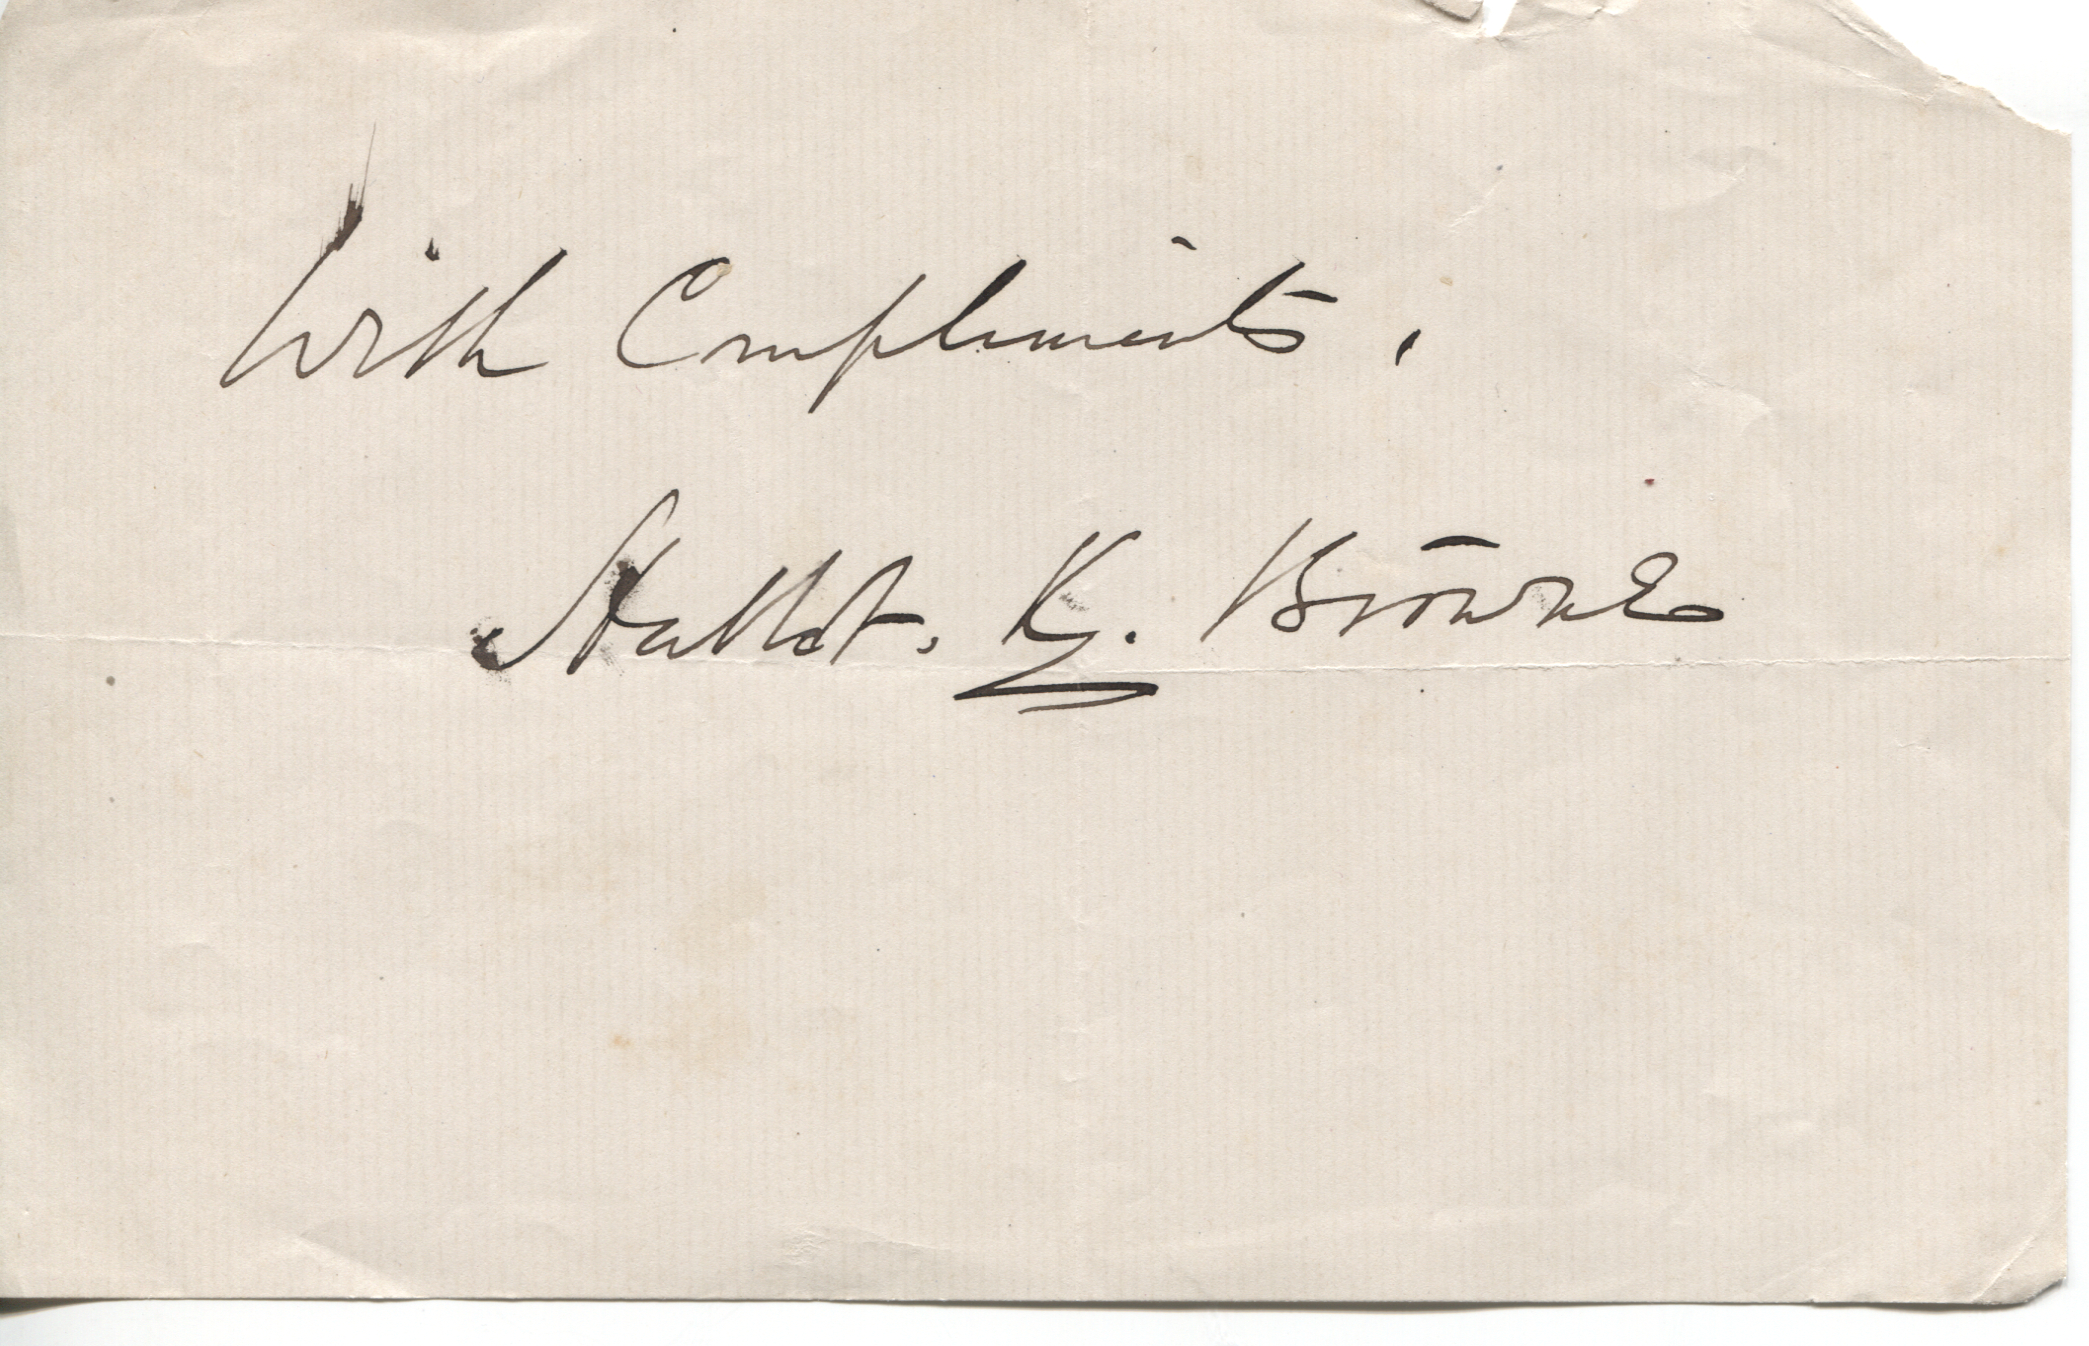 With Compliments.
Hablot. K. Browne